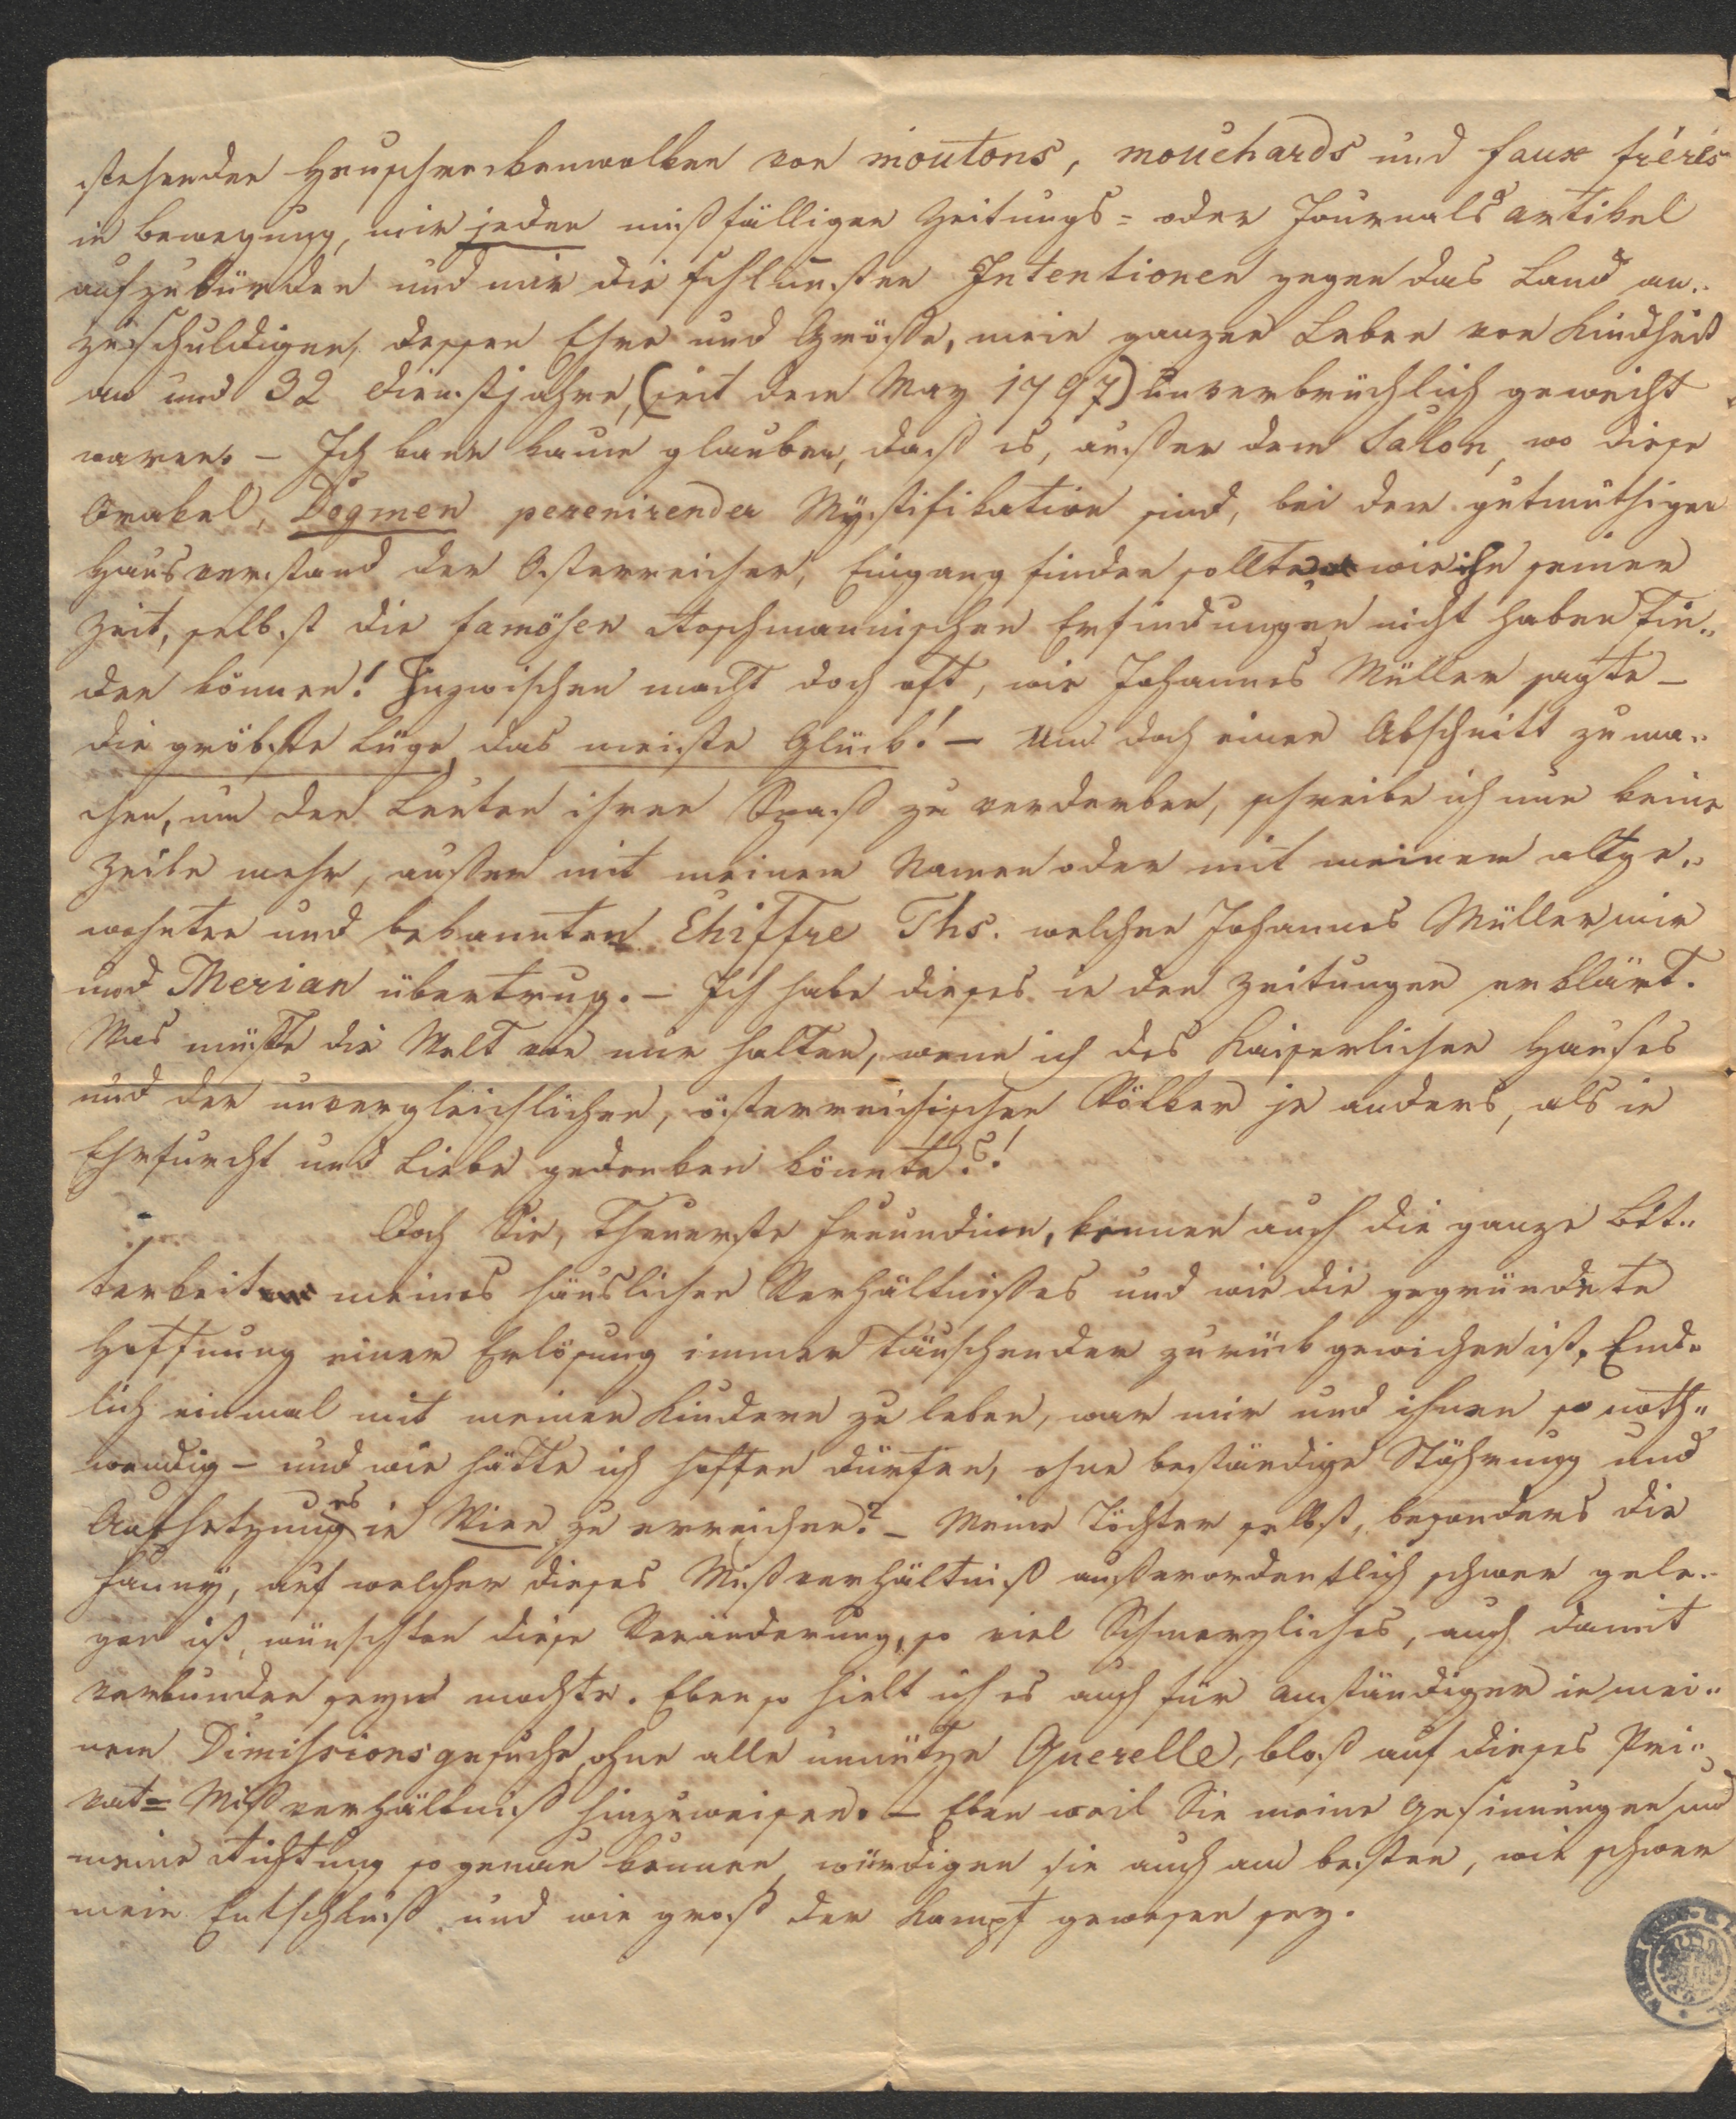 stehenden Heuschreckenwolken von moutons, mouchards und faux frérès
in Bewegung, mir jeden mißfälligen Zeitungs= oder Journals artikel
aufzubürden und mir die schlimsten Intentionen gegen das Land an„
zuschuldigen, dessen Ehre und Größe, mein ganzes Leben von Kindheit
an und 32 Dienstjahre, (seit dem May 1797) unverbrüchlich geweiht
waren. – Ich kann kaum glauben, daß es, außer dem Salon, wo diese
Orakel, Dogmen perenirender Mystifikation sind, bei dem gutmüthigen
Hausverstand der Osterreicher, Eingang finden sollte, wie ihn seiner
Zeit, selbst die famösen Aschmannischen Erfindungen nicht haben fin„
den können! Inzwischen macht doch oft, wie Johannes Müller sagte –
die gröbste Lüge, das meiste Glück! – Um doch einen Abschnitt zu ma„
chen, um den Leuten ihren Spaß zu verderben, schreibe ich nun keine
Zeile mehr, außer mit meinem Namen oder mit meiner altge„
wohnten und bekannten Chiffre Ths. welche Johannes Müller mir
und Merian übertrug. – Ich habe dieses in den Zeitungen erklärt.
Was müßte die Welt von mir halten, wenn ich des Kaiserlichen Hauses
und der unvergleichlichen, österreichischen Völker je anders, als in
Ehrfurcht und Liebe gedenken könnte?!
Doch Sie, Theuerste Freundinn, kennen auch die ganze Bit„
terkeit meines häuslichen Verhältnißes und wie die gegründete
Hoffnung einer Erlösung immer täuschender zurück gewichen ist. End„
lich einmal mit meinen Kindern zu leben, war mir und ihnen so noth„
wendig – und wie hätte ich hoffen dürfen, ohne beständige Stöhrung und
Aufhetzung es in Wien zu erreichen? – Meine Töchter selbst, besonders die
Fanny, auf welcher dieses Mißverhältniß außerordentlich schwer gele„
gen ist, wünschten diese Veränderung, so viel Schmerzliches, auch damit
verbunden seyn mochte. Eben so hielt ich es auch für anständiger in mei„
nem Dimissionsgesuche, ohne alle unnütze Querelle, bloß auf dieses Pri„
vat= Mißverhältniß hinzuweisen. – Eben weil Sie meine Gesinnungen und
meine Richtung so genau kennen, würdigen sie auch am besten, wie schwer
mein Entschluß und wie groß der Kampf gewesen sey.